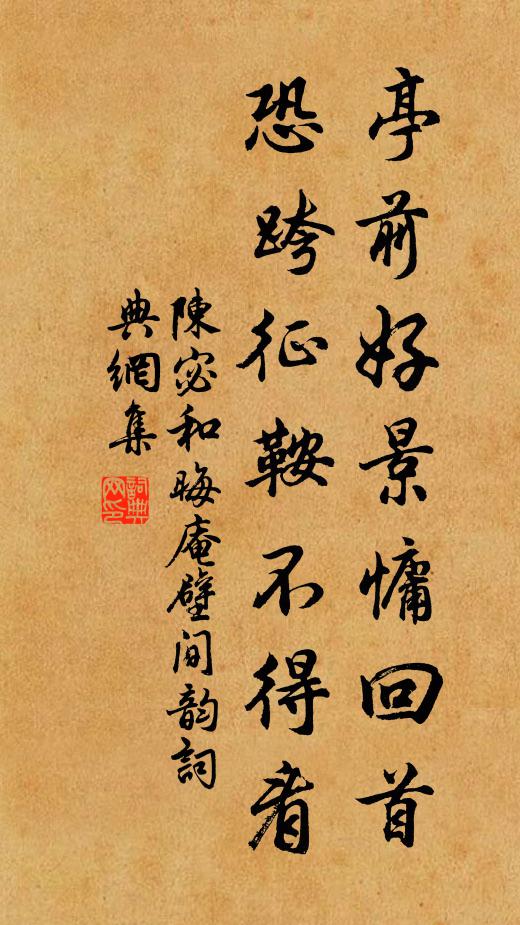 亭前好景慵回首
恐跨征鞍不得看
陳宓和晦庵壁間韵詞
典網集
詞典網印